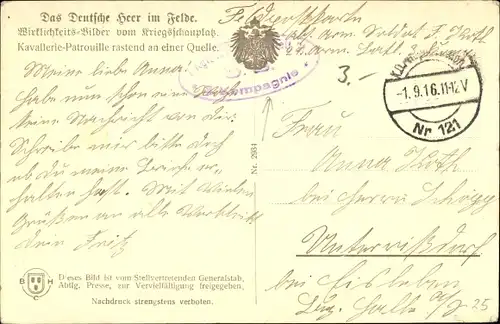 Das Deutsche Heer im Felde.
Wirklichkeits-Bilder vom Kriegsschauplatz.
Kavallerie-Patrouille rastend an einer Quelle.
Feldpostkarte
Abs. Arm. Soldat F. Koth
Arm. Batl.
Kompagnie
3.-
-1.9.16.11-12V
Nr 121
Meine liebe Anna!
Habe nun schon eine
keine Nachricht von dir.
Schreibe mir bitte doch
ob du meine Briefe er-
halten hast. Mit vielen
Grüßen an alle
dein Fritz
Nr. 2934
Frau
Anna Koth
bei Herrn
Unterrißdorf
bei Eisleben
Bez. Halle a/S
J-25
B H C
Dieses Bild ist vom Stellvertretenden Generalstab,
Abtlg. Presse, zur Vervielfältigung freigegeben,
Nachdruck strengstens verboten.